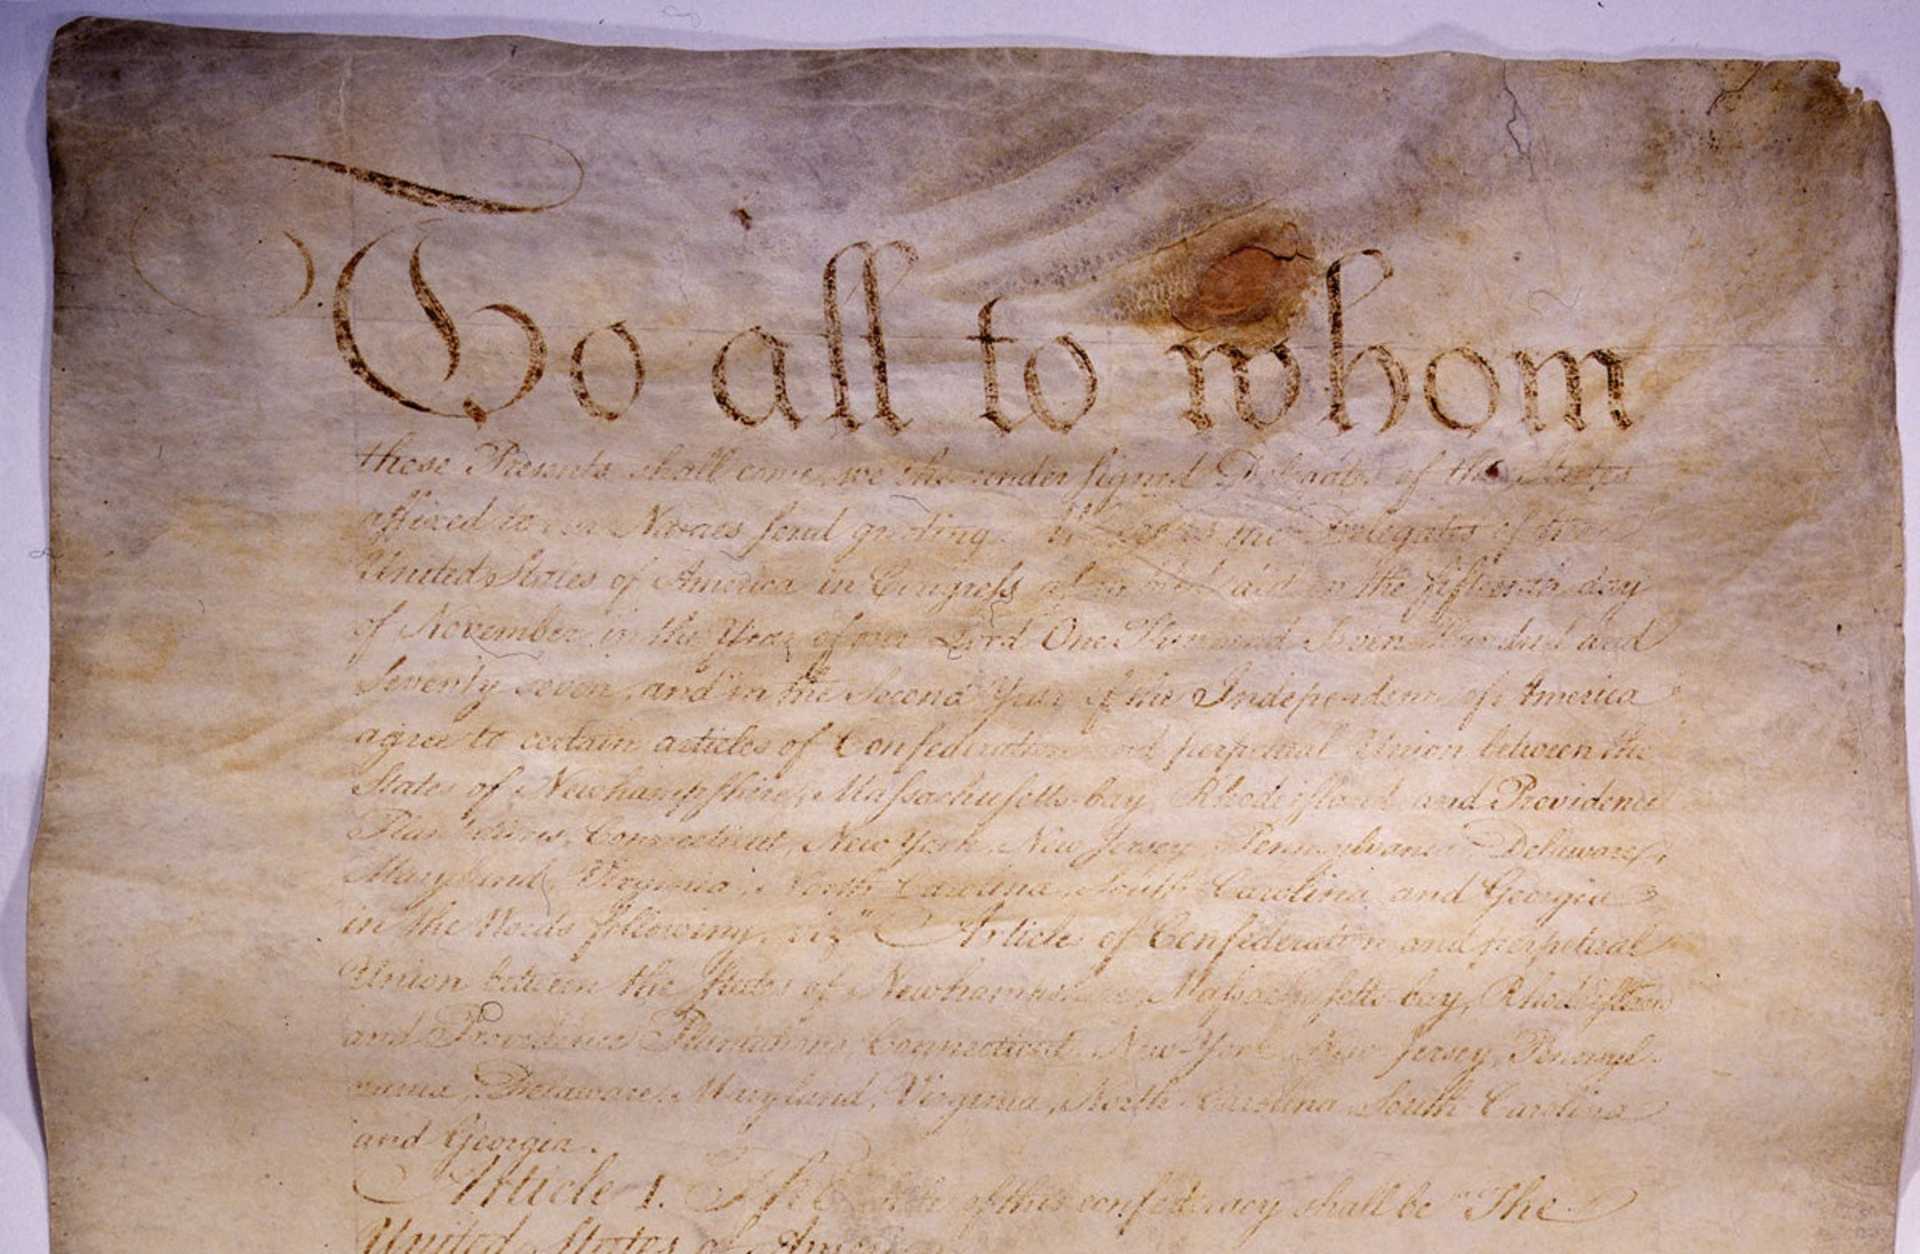 To all to whom
these Presents shall come, we the under signed Delegates of the States
affixed to our Names send greeting. Whereas the Delegates of the
United States of America in Congress assembled did on the fifteenth day
of November in the Year of our Lord One Thousand Seven Hundred and
Seventy seven, and in the Second Year of the Independence of America
agree to certain articles of Confederation and perpetual Union between the
States of Newhampshire, Massachusetts-bay, Rhodeisland and Providence
Plantations, Connecticut, New York, New Jersey, Pennsylvania, Delaware,
Maryland, Virginia, North-Carolina, South-Carolina and Georgia
in the Words following, viz. "Articles of Confederation and perpetual
Union between the States of Newhampshire, Massachusetts-bay, Rhodeisland
and Providence Plantations, Connecticut, New-York, New-Jersey, Pennsyl-
vania, Delaware, Maryland, Virginia, North-Carolina, South-Carolina
and Georgia.
Article I. The Stile of this confederacy shall be "The
United States of America